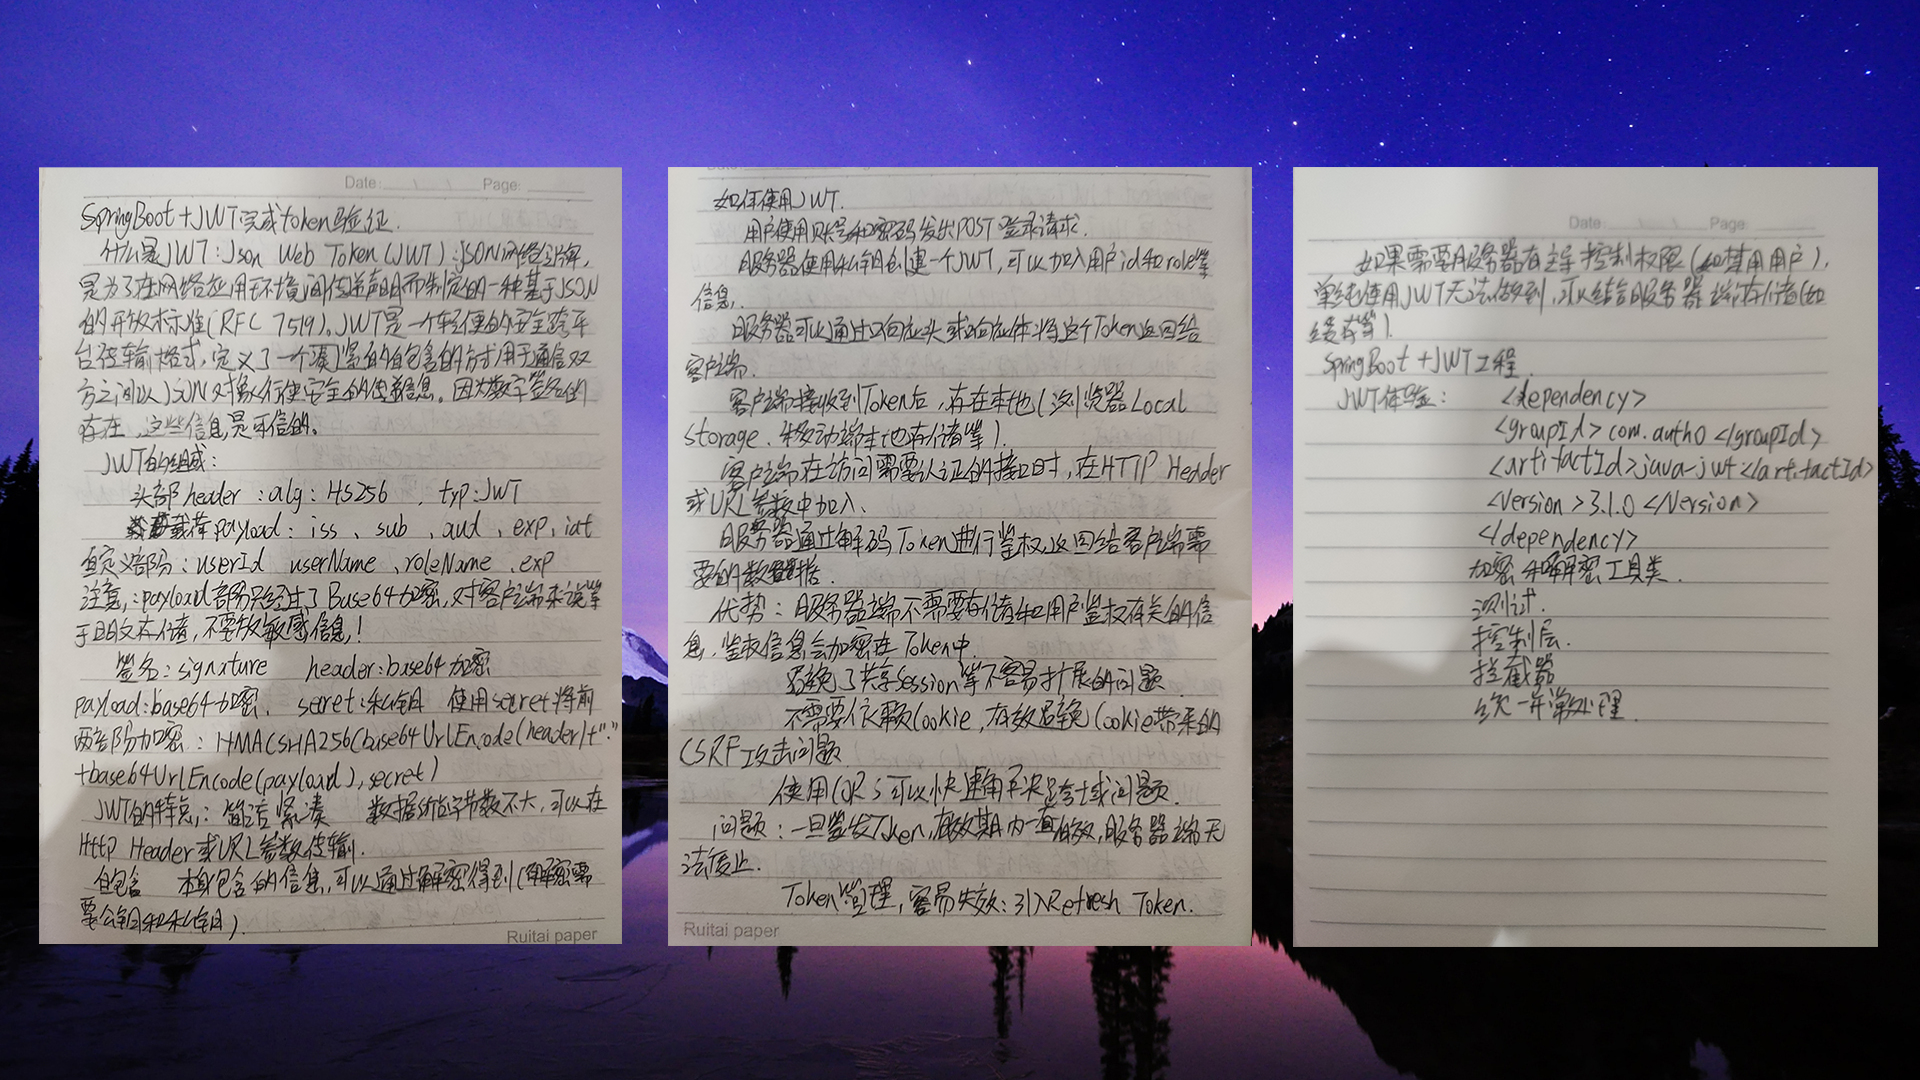 Date: Page:
SpringBoot+JWT完成token验证.
什么是JWT:Json Web Token(JWT):JSON网络令牌,
是为了在网络应用环境间传递声明而制定的一种基于JSON
的开放标准(RFC 7519)。JWT是一个轻便的安全跨平
台传输格式,定义了一个紧凑的自包含的方式用于通信双
方之间以JSON对象行使安全的传递信息。因为数字签名的
存在,这些信息是可信的。
JWT的组成:
头部header:alg:HS256 、typ:JWT
载荷payload:iss、sub、aud、exp、iat
自定义部份:userId userName、roleName、exp
注意:payload部份只经过了Base64加密,对客户端来说等
于明文本储,不要放敏感信息!
签名:signature header:base64加密
payload:base64加密、 secret:私钥 使用secret将前
两部份加密:HMACSHA256(base64UrlEncode(header)+"."
+base64UrlEncode(payload),secret)
JWT的特点:简洁紧凑 数据的字节数不大,可以在
Http Header或URL参数传输.
自包含 本身包含的信息,可以通过解密得到(解密需
要公钥和私钥).
Ruitai paper
如何使用JWT.
用户使用账号和密码发出POST登录请求.
服务器使用私钥创建一个JWT,可以加入用户id和role等
信息.
服务器可以通过响应头或响应体将这个Token返回给
客户端.
客户端接收到Token后,存在本地(浏览器Local
Storage、移动端本地存储等).
客户端在访问需要认证的接口时,在HTTP Header
或URL参数中加入.
服务器通过解码Token进行鉴权,返回给客户端需
要的数据.
优势:服务器端不需要存储和用户鉴权有关的信
息,鉴权信息会加密在Token中.
避免了共享Session等不容易扩展的问题.
不需要依赖Cookie,有效避免Cookie带来的
CSRF攻击问题
使用CORS可以快速解决跨域问题.
问题:一旦签发Token,有效期内一直有效,服务器端无
法废止.
Token管理,容易失效:引入Refresh Token.
Ruitai paper
Date: Page:
如果需要服务器有主导控制权限(如禁用用户),
单纯使用JWT无法做到,可以结合服务器端存储(如
缓存等).
SpringBoot+JWT工程.
JWT体验: <dependency>
<groupId>com.auth0</groupId>
<artifactId>java-jwt</artifactId>
<version>3.1.0</version>
</dependency>
加密和解密工具类.
测试.
控制层.
拦截器
统一异常处理.